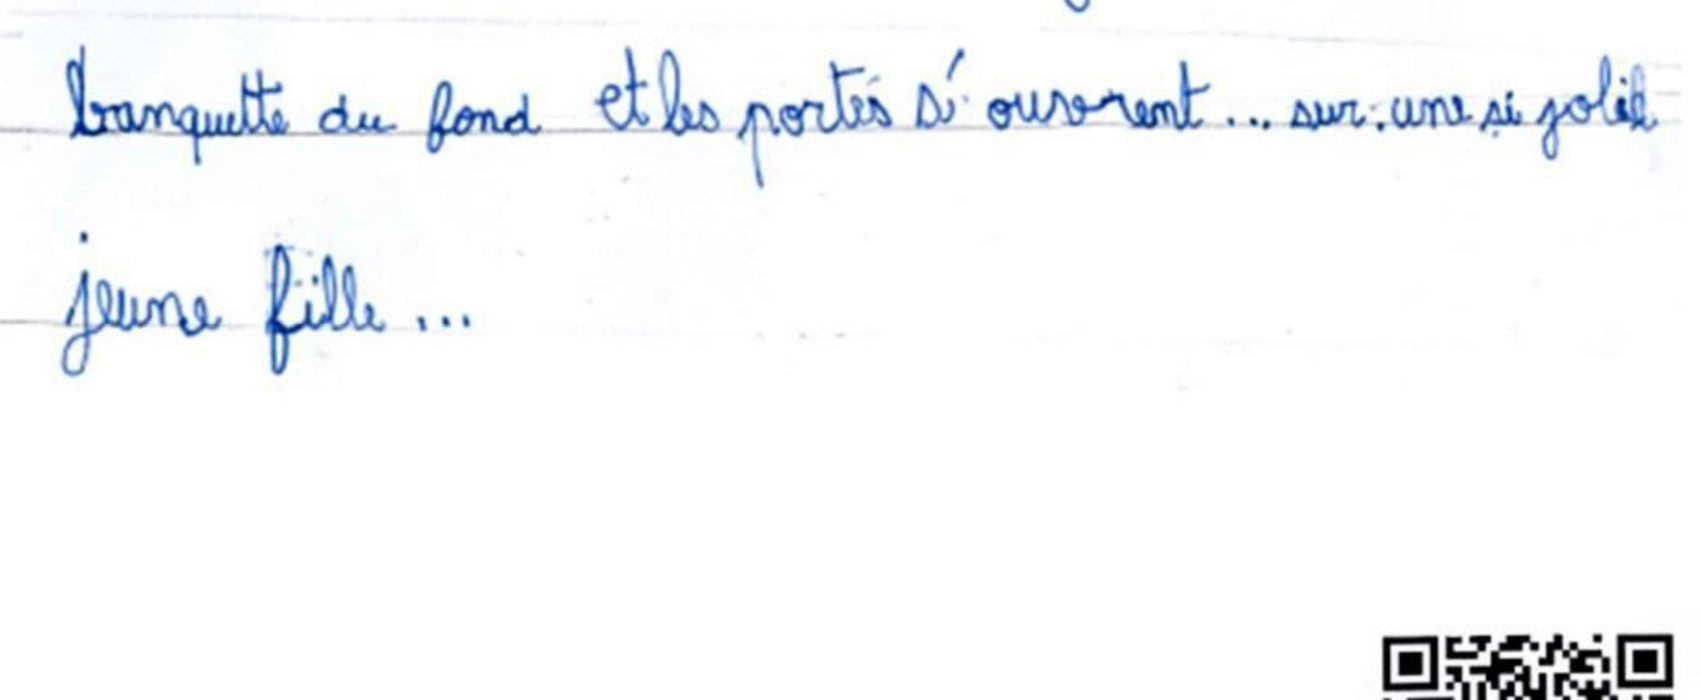 banquette du fond et les portes s'ouvrent... sur une si jolie
jeune fille...